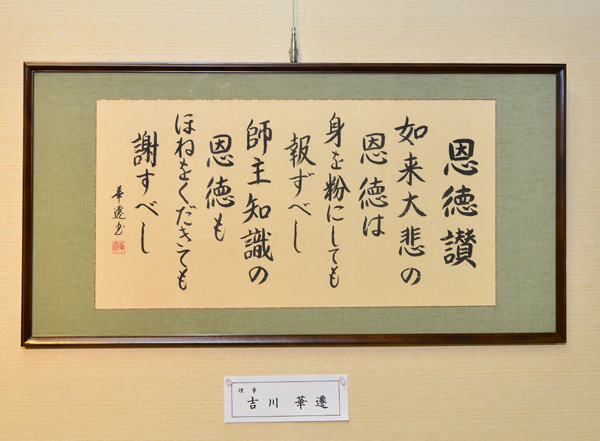 恩徳讃
如来大悲の
恩徳は
身を粉にしても
報ずべし
師主知識の
恩徳も
ほねをくだきても
謝すべし
華遷書
理事
吉川 華遷